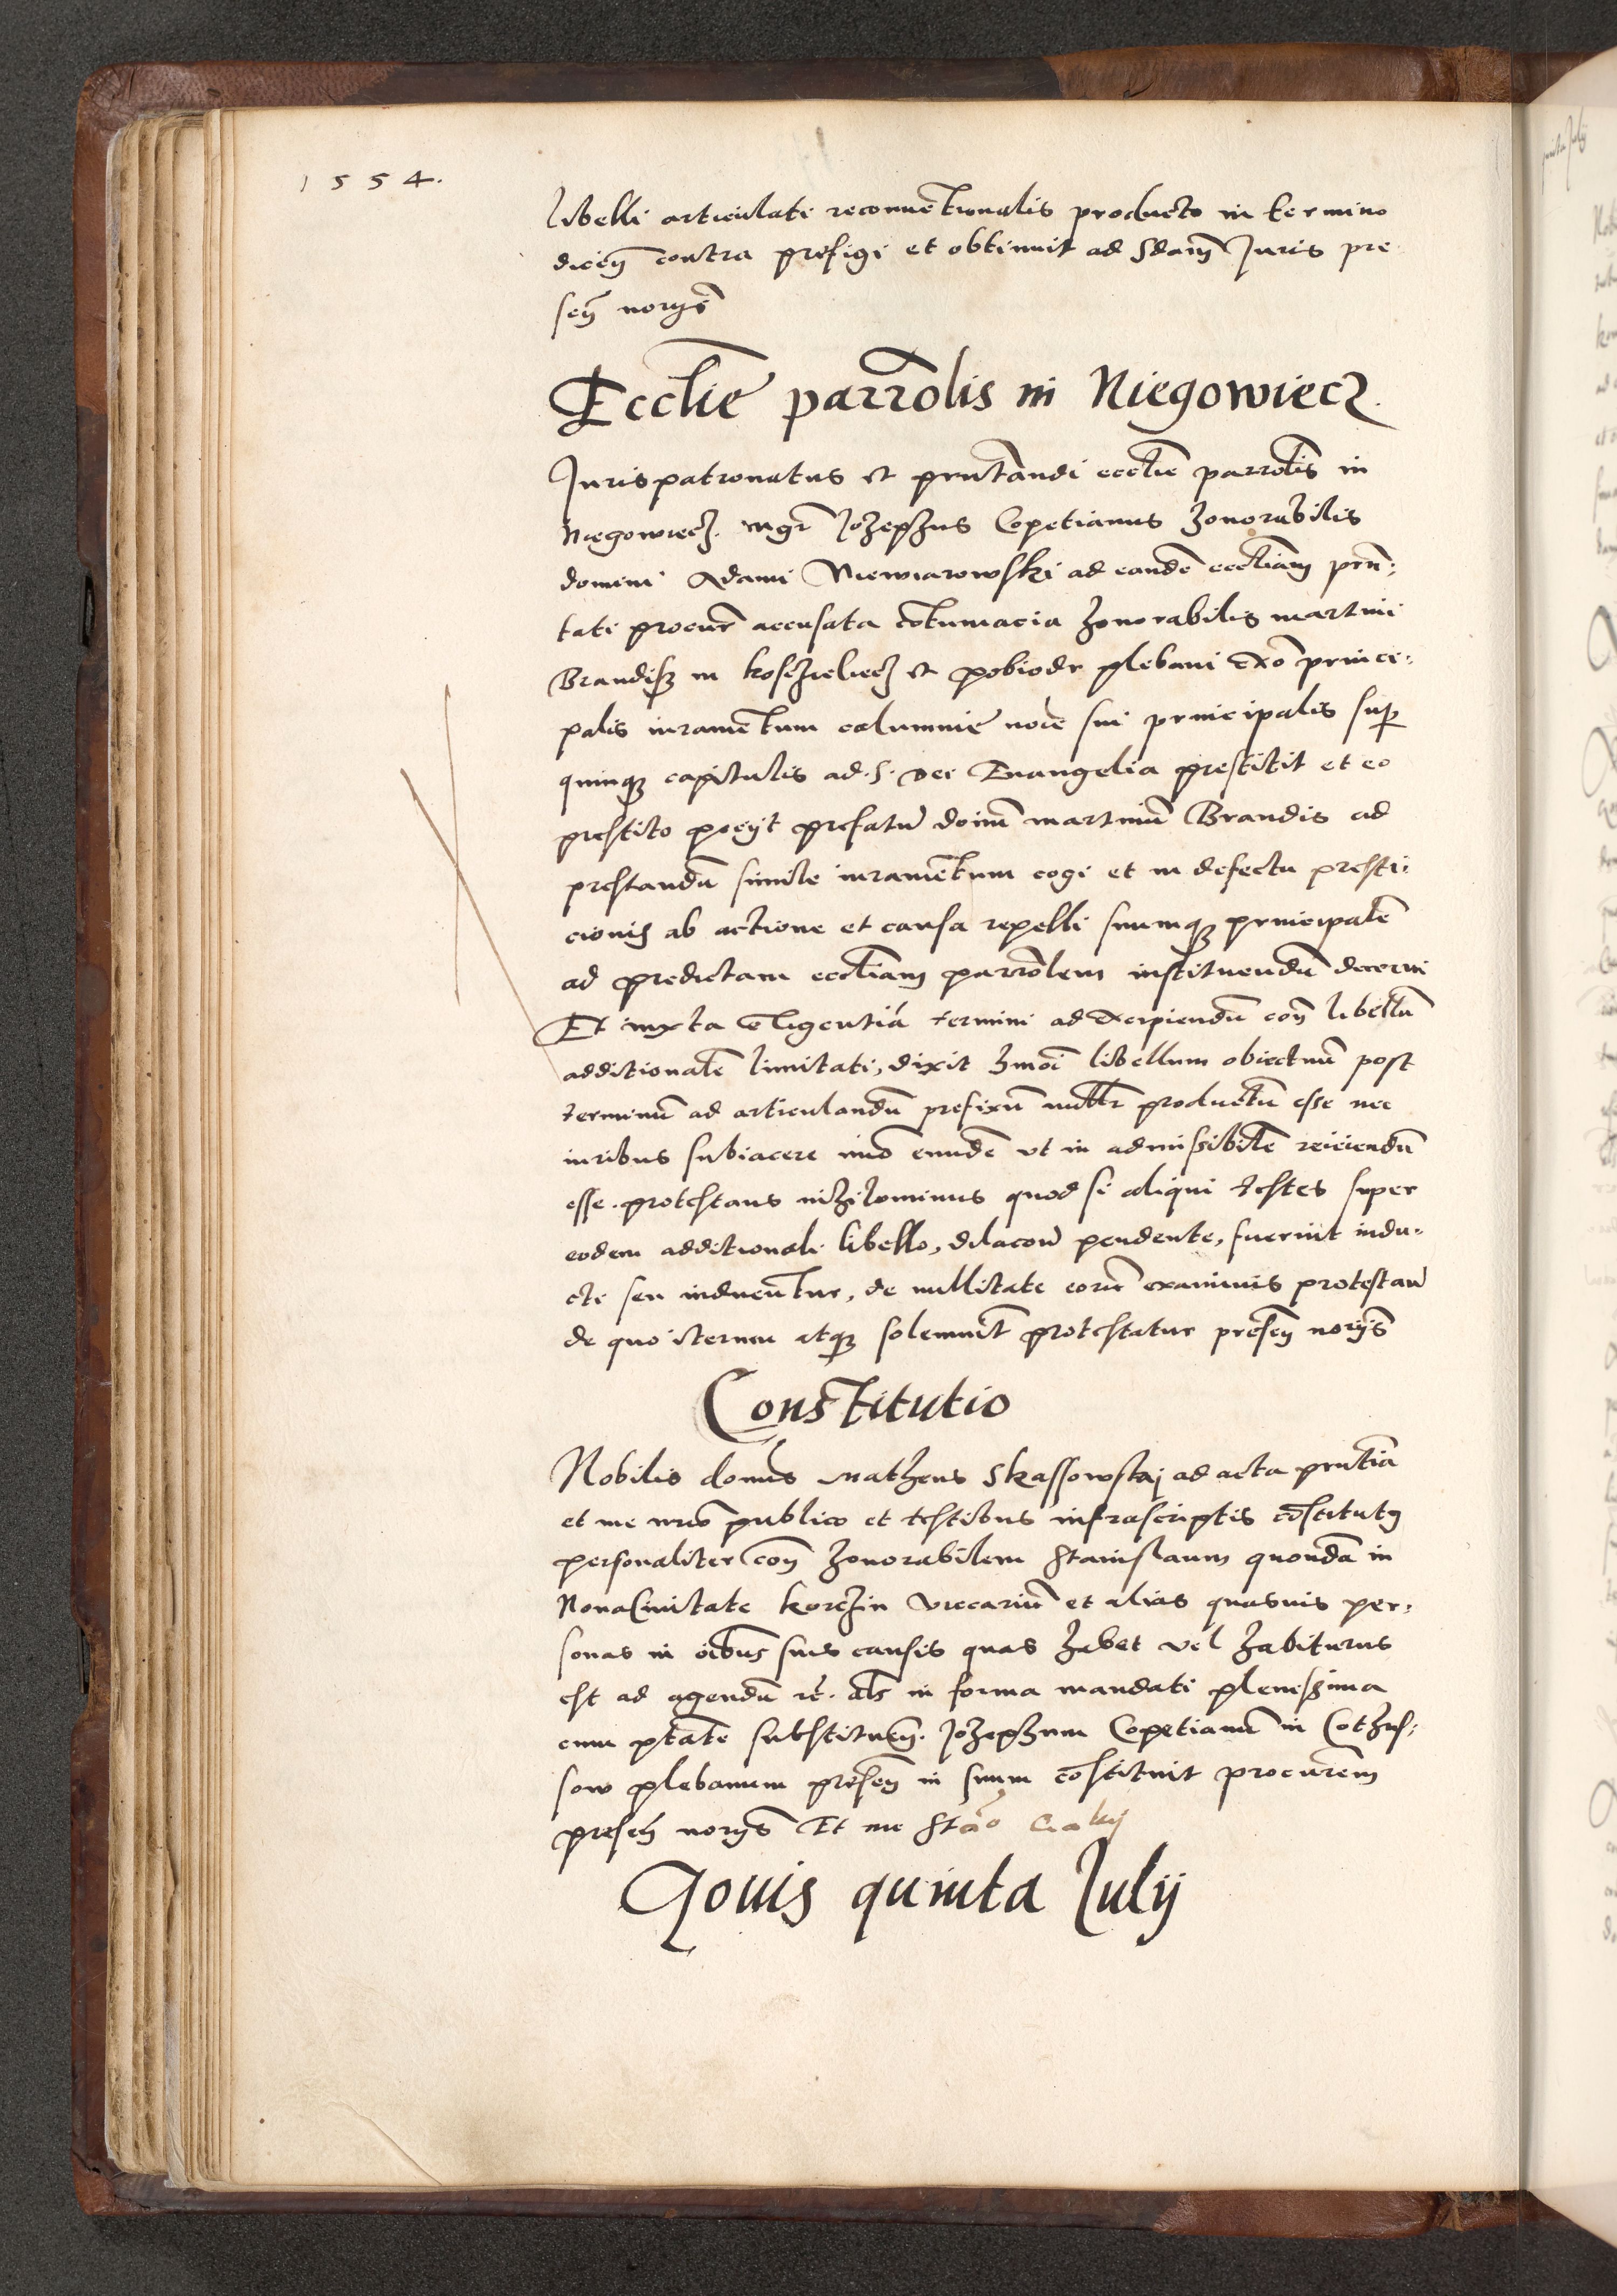 1554.
libelli articulati reconuētionalis producto in termino
dicen̄ contra prefigi et obtinuit ad Sdam̄ Juris pre
sen̄ norijs
Ecclie parrolis in Niegowiecz.
Jurispatronatus et pn̄tandi ecclie parrolis in
Niegowiecz. mgr̄ Johephus Copetianus honorabilis
domini Adami Niewiarowski ad eandē eccliam pn̄:
tati procur̄ accusata cōtumacia honorabilis martini
Brandisz in kosczielecz et pobiodr plebani Exo princi:
palis iuramētum calumnie noīe sui principalis sup
quinqȝ capitulis ad .S. dei Euangelia prestitit et eo
prestito peijt prefatū domū martinū Brandis ad
prestandū simile iuramētum cogi et in defectu presti:
cionis ab actione et causa repelli suumqȝ principalē
ad predictam eccliam parrolem instituendū decerni
Et iuxta exigentiā termini ad excipiendū con̄ libellū
additionalē limitati, dixit hmōi libellum obiectiuū post
terminū ad articulandū prefixū nullr̄ productū esse nec
iuribus subiacere imo eundē vt in admissibilē reiiciendū
esse. protestans nihilominus quod si aliqui testes super
eodem additionali libello, dilacoe pendente, fuerint indu:
cti seu inducētur, de nullitate eorū examinis protestan̄
de quo iterum atqȝ solemnit̄ protestatur presen̄ norijs
Constitutio
Nobilis domus Matheus Skassowskj ad acta pn̄tia
et me nrio publico et testibus infrascriptis cōstitutus
personaliter con̄ honorabilem Stanislaum quondā in
NouaCiuitate korczin viccariū et alias quasuis per:
sonas in oībus suis causis quas habet vel habiturus
est ad agendū rc. als in forma mandati plenissima
cum ptāte substituen̄. Johephum Copetianū in Cothus:
sow plebanum presen̄ in suum cōstituit procurem̄
presen̄ norijs Et me Stāo
Jouis quinta Julij